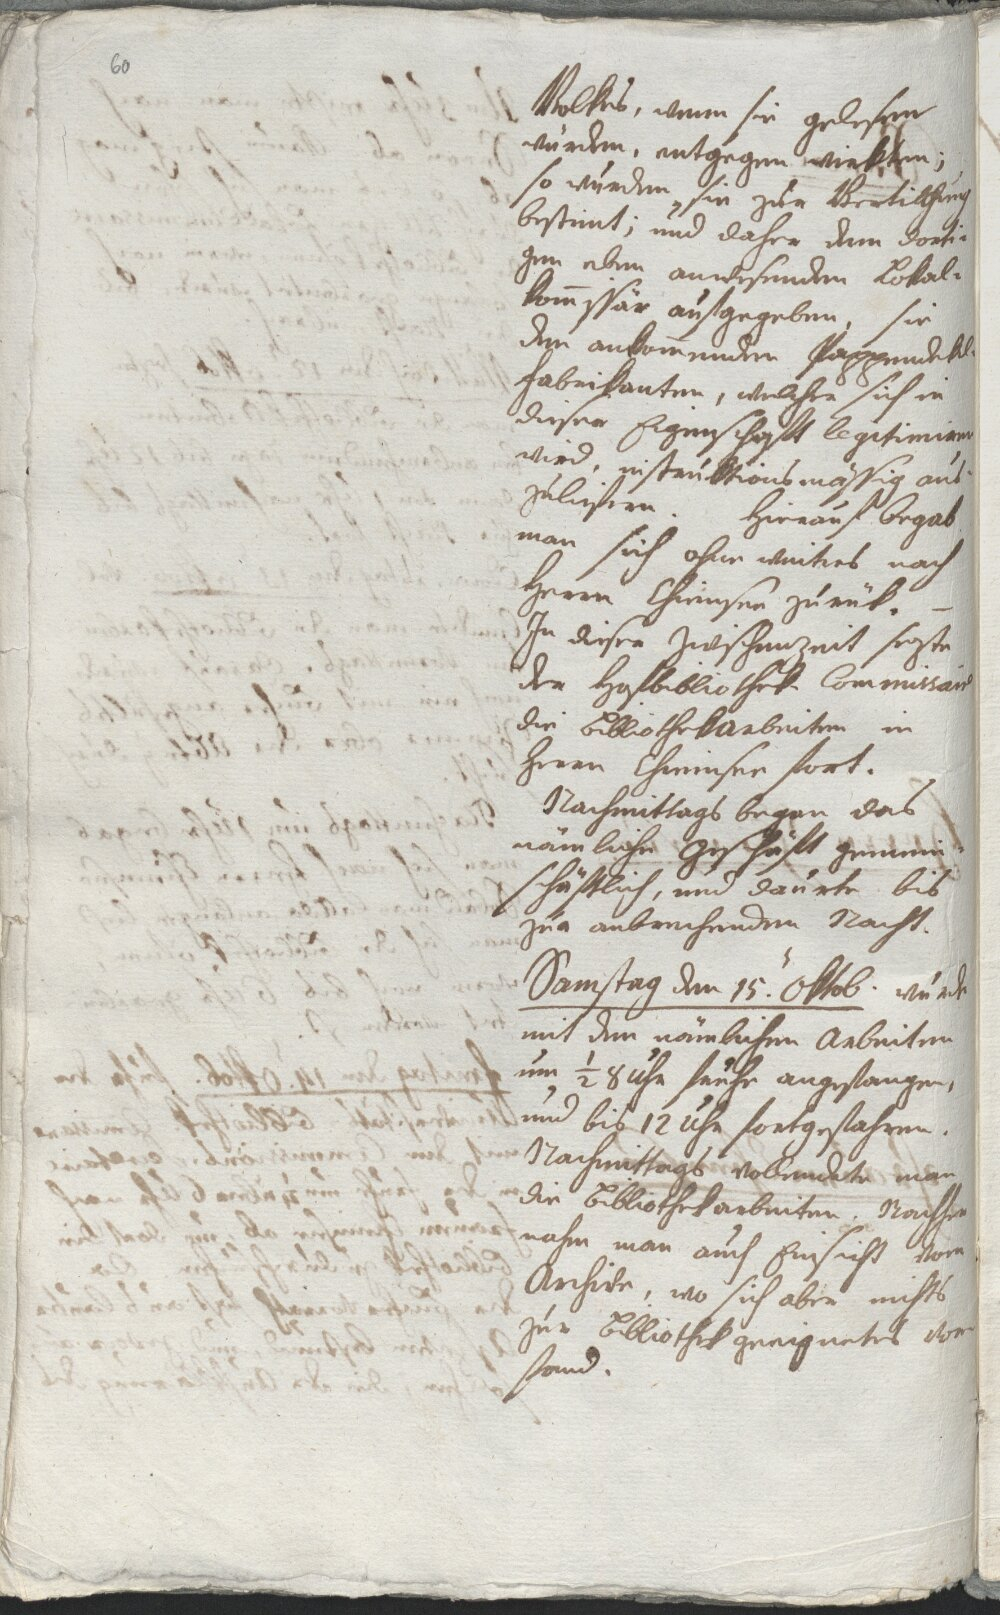 60
Volkes, wenn sie gelesen
würden, entgegen wirkten;
so wurden sie zur Vertilgung
bestimt; und daher dem dorti-
gen eben anwesenden Lokal-
kommissär aufgegeben, sie
dem ankommenden Pappendekel-
fabrikanten, welcher sich in
dieser Eigenschaft legitimiren
wird, instruktionsmässig aus-
zuliefern. Hierauf begab
man sich ohne weiters nach
Herrn Chiemsee zurük. –
In dieser Zwischenzeit sezte
der Hofbibliothek Commissair
die Bibliothekarbeiten in
Herrn Chiemsee fort.
Nachmittags began das
nämliche Geschäft gemein-
schäftlich, und daurte bis
zur anbrechenden Nacht.
Samstag den 15. Oktob. wurde
mit den nämlichen Arbeiten
um ½ 8 Uhr frühe angefangen,
und bis 12 Uhr fortgefahren.
Nachmittags vollendete man
die Bibliothekarbeiten. Nachher
nahm man auch Einsicht vom
Archive, wo sich aber nichts
zur Bibliothek geeignetes vor-
fand.